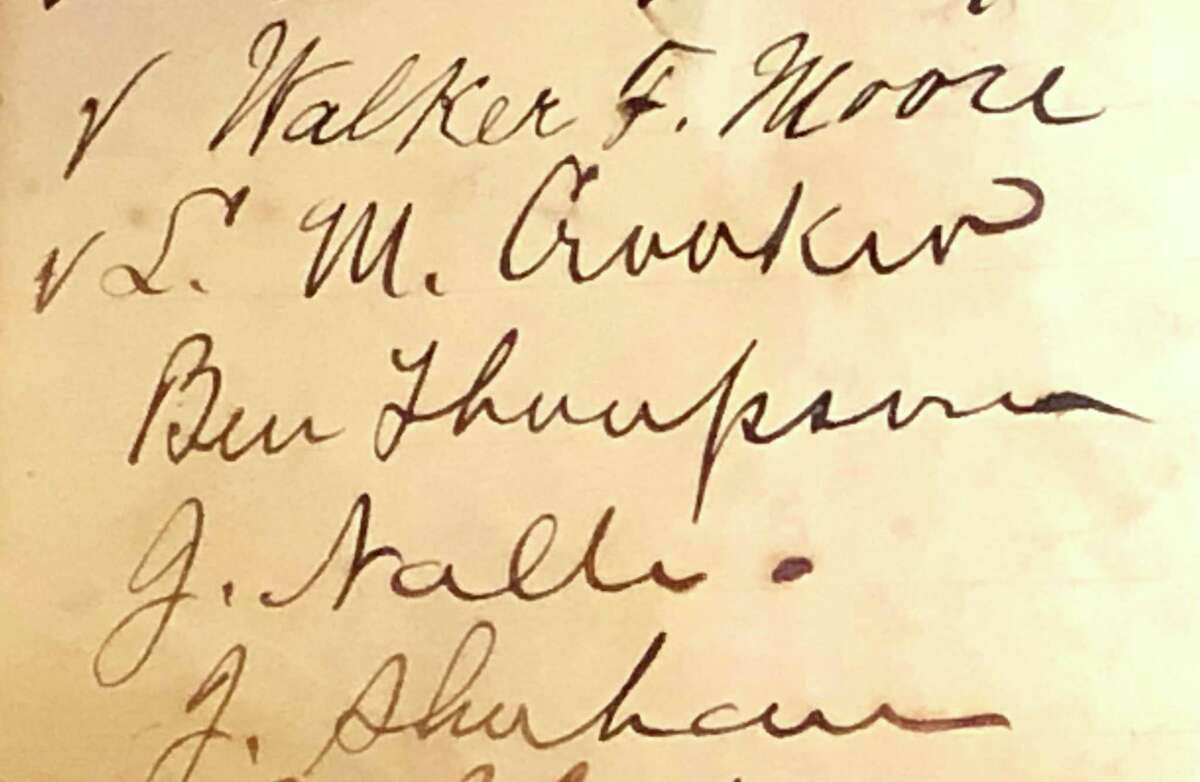 √ Walker F. Moore
√ L. M. Crooker
Ben Thompson
J. Nalle.
J. Shuham